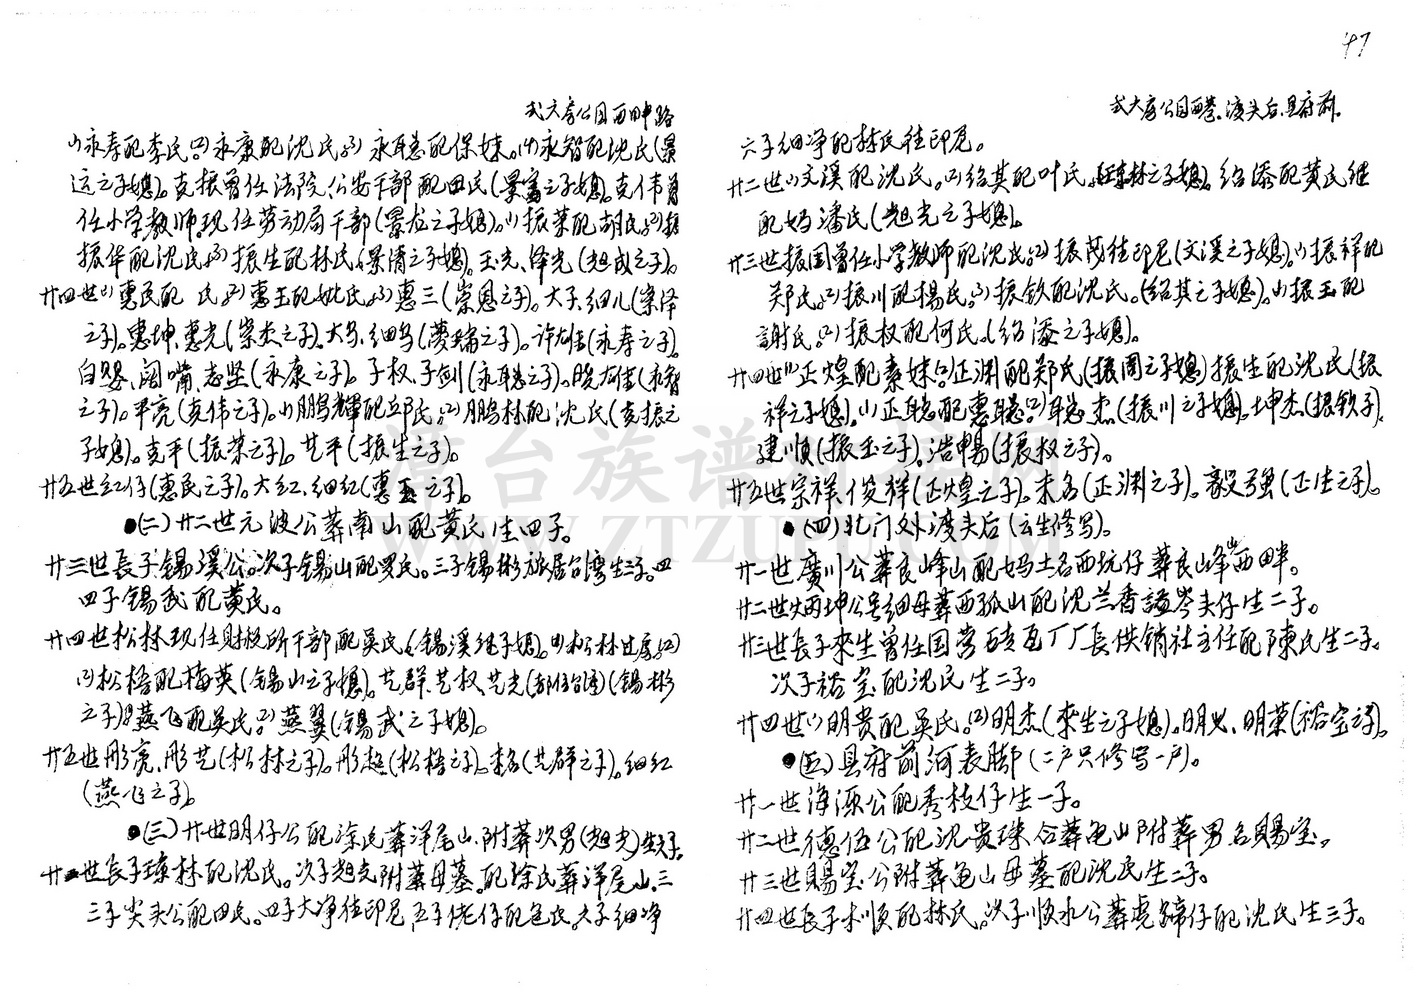 47
弍大房公园西畔路
⑴永寿配李氏。⑵永康配沈氏。⑶永聪配保妹。⑷永智配沈氏(景
远之子媳)。克振曾任法院、公安干部配田氏(景富之子媳)。克伟曾
任小学教师现任劳动局干部(景龙之子媳)。⑴振荣配胡氏。⑵振
振华配沈氏。⑶振生配林氏(景清之子媳)。玉光、泽光(旭成之子)。
廿四世⑴惠民配 氏。⑵惠玉配妣氏。⑶惠三(崇恩之子)。大子、细儿(崇泽
之子)。惠坤、惠光(崇杰之子)。大乌、细乌(梦瑞之子)。许雄(永寿之子)。
白婴、阔嘴、志坚(永康之子)。子权、子剑(永聪之子)。晓雄(永智
之子)。平亮(克伟之子)。⑴鹏辉配邱氏。⑵鹏林配沈氏(克振之
子媳)。克平(振荣之子)。艺平(振生之子)。
廿五世红仔(惠民之子)。大红、细红(惠玉之子)。
●(二)廿二世元波公葬南山配黄氏生四子。
廿三世長子锡溪公。次子锡山配罗氏。三子锡彬旅居台湾生三子。四
四子锡武配黄氏。
廿四世松林现任财税所干部配吴氏(锡溪继子媳)。⑴松林过房。⑵
⑵松梧配梅英(锡山之子媳)。艺群、艺权、艺光(都住台湾)(锡彬
之子)。燕飞配吴氏。⑵燕翼(锡武之子媳)。
廿五世彤亮、彤艺(松林之子)。彤超(松梧之子)。未名(艺群之子)。细红
(燕飞之子)。
●(三)廿世明仔公配涂氏葬洋尾山、附葬次男(旭光)生六子。
廿一世長子琼林配沈氏。次子旭光附葬母墓、配徐氏葬洋尾山。三
三子尖头公配田氏。四子大净往印尼、五子佬仔配包氏。六子细净
弍大房公园西巷、渡头后、县府前。
六子细净配林氏往印尼。
廿二世⑴文溪配沈氏。⑵绍其配叶氏(琼林之子媳)。绍添配黄氏继
配妈潘氏(旭光之子媳)。
廿三世振国曾任小学教师配沈氏。⑵振茂往印尼(文溪之子媳)。⑴振祥配
郑氏。⑵振川配杨氏。⑶振钦配沈氏。(绍其之子媳)。⑴振玉配
謝氏。⑵振权配何氏。(绍添之子媳)。
廿四世⑴正煌配素妹。⑵正渊配郑氏(振国之子媳)振生配沈氏(振
祥之子媳)。⑴正聪配惠聪。⑵聪杰(振川之子媳)。坤杰(振钦子)。
建顺(振玉之子)。浩暢(振权之子)。
廿五世宗祥、俊祥(正煌之子)。未名(正渊之子)。毅强(正生之子)。
●(四)北门外渡头后(云生修写)。
廿一世廣川公葬良峰山配妈土名西坑仔葬良峰山西畔。
廿二世炳坤公号细母葬西孤山配沈兰香謚岑夫仔生二子。
廿三世長子來生曾任国营砖瓦厂厂長供销社主任配陳氏生二子。
次子裕宝配沈氏生二子。
廿四世⑴明贵配吴氏。⑵明杰(來生之子媳)。明光、明菜(裕宝之子)。
●(五)县府前河表脚(二户只修写一户)。
廿一世海源公配秀枝仔生一子。
廿二世德伍公配沈贵珠合葬龟山附葬男名賜宝。
廿三世賜宝公附葬龟山母墓配沈氏生二子。
廿四世長子木順配林氏。次子順水公葬虎蹄仔配沈氏生三子。
潭台族谱对接网
WWW.ZTZUPU.COM